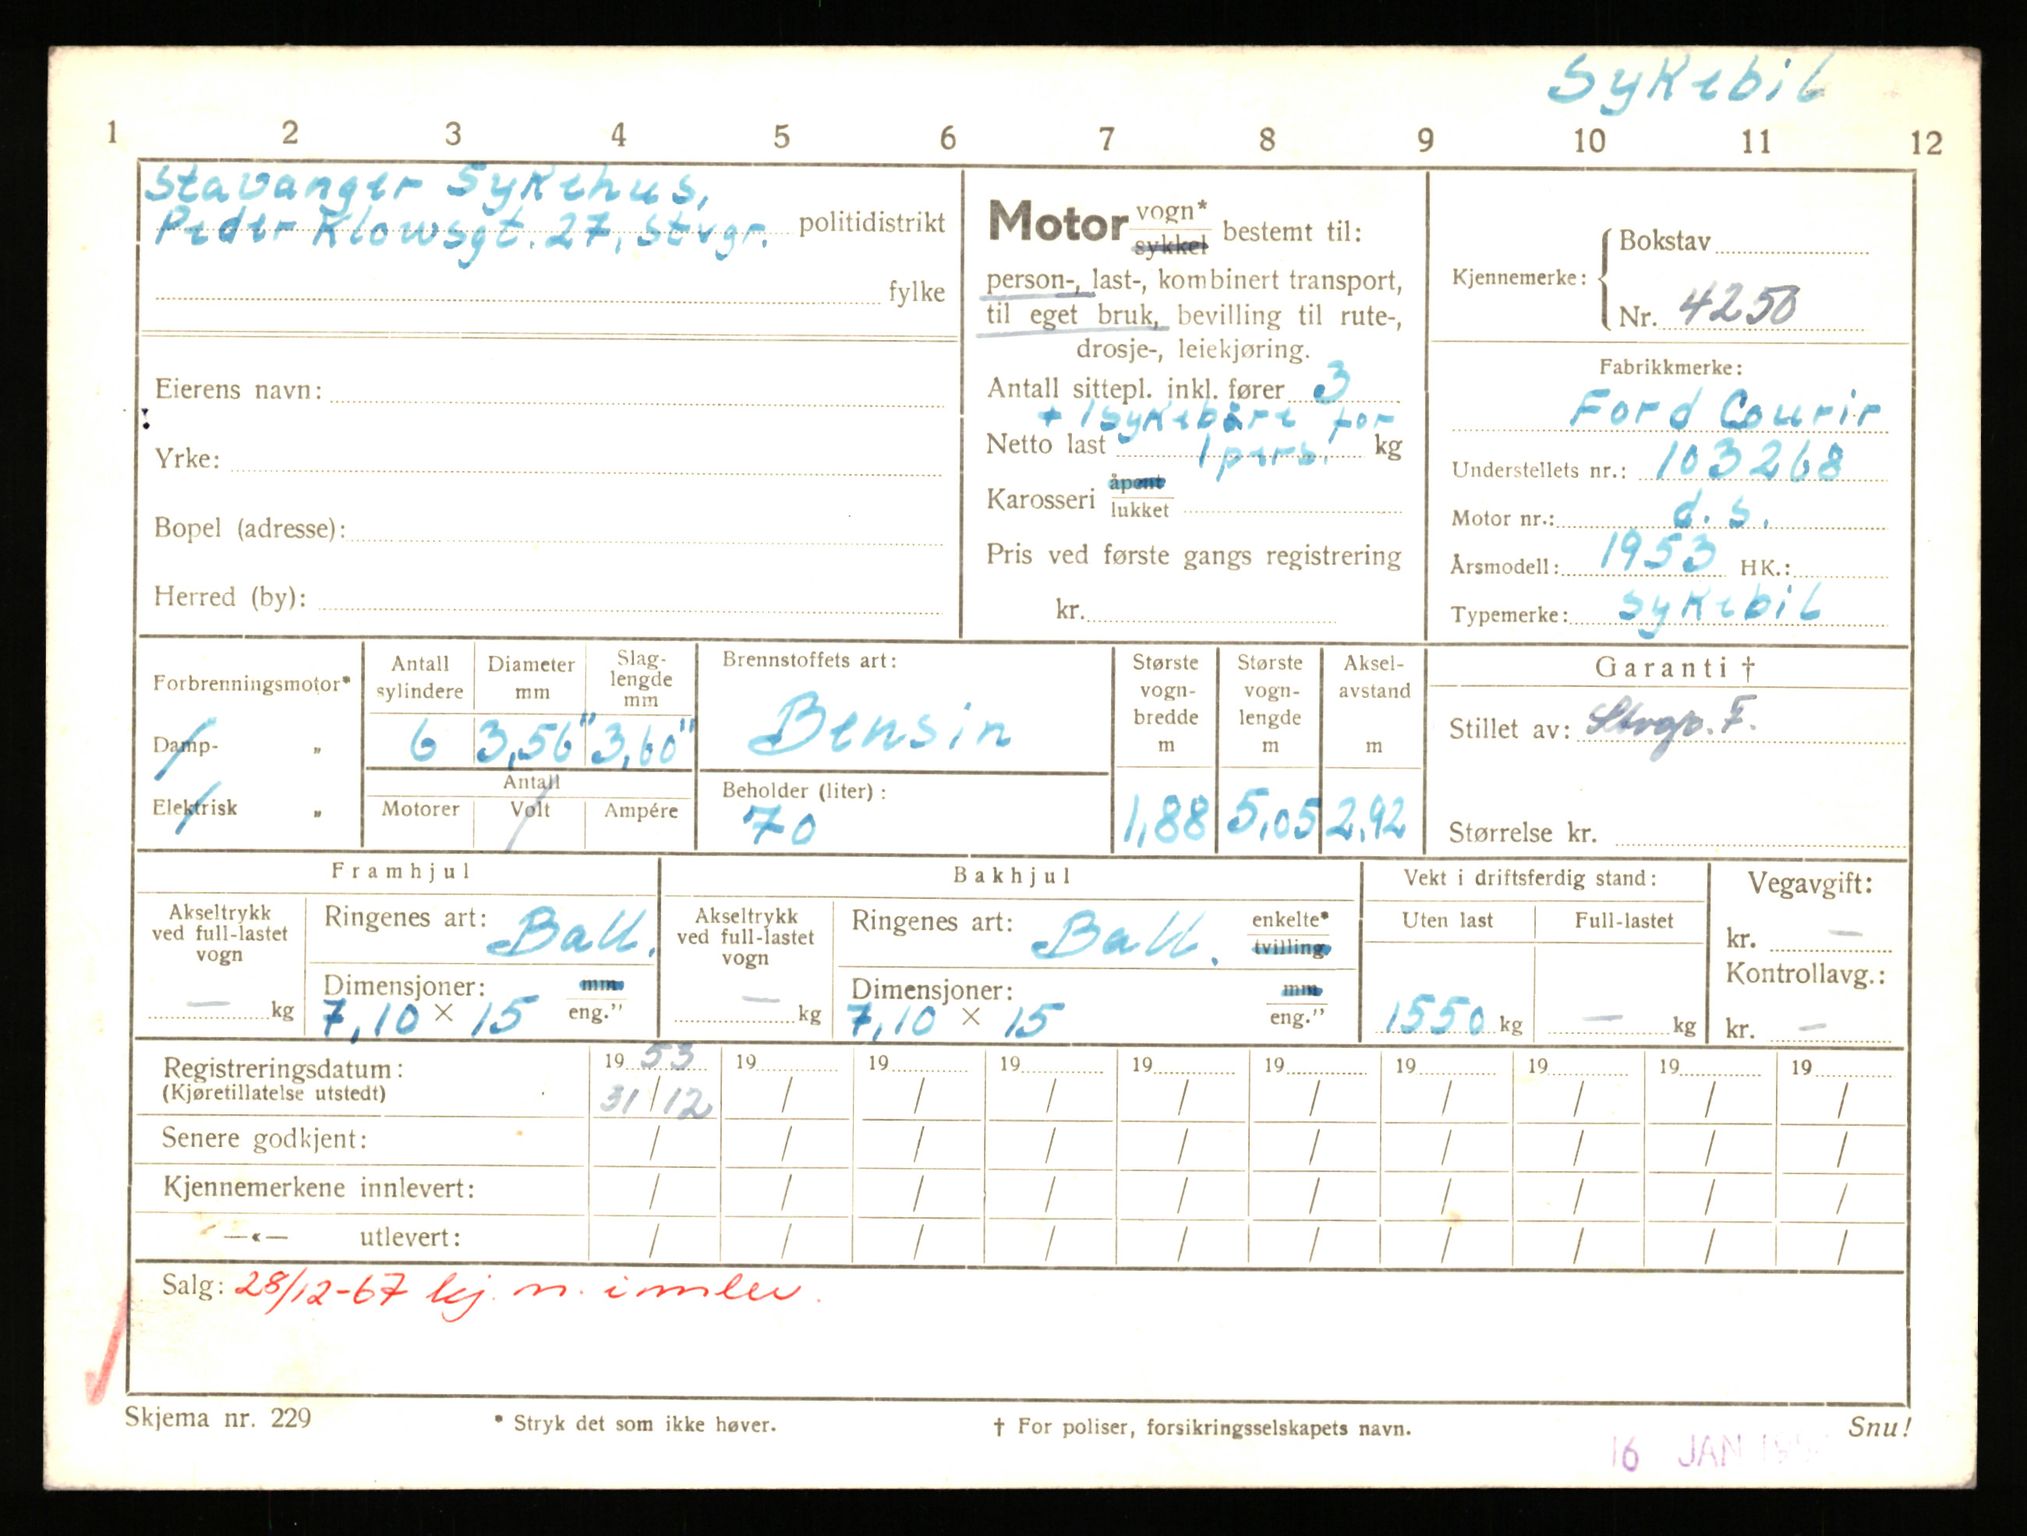 Sykebil
1 2 3 4 5 6 7 8 9 10 11 12
Stavanger Sykehus,
Peder Klowsgt. 27, Stvgr. politidistrikt
fylke
Eierens navn:
Yrke:
Bopel (adresse):
Herred (by):
Motor vogn* sykkel bestemt til:
person-, last-, kombinert transport,
til eget bruk, bevilling til rute-,
drosje-, leiekjøring.
Antall sittepl. inkl. fører 3
+ 1 sykebåre for
Netto last 1 pers. kg
Karosseri åpent lukket
Pris ved første gangs registrering
kr.
Kjennemerke: Bokstav
Nr. 4250
Fabrikkmerke:
Ford Courir
Understellets nr.: 103268
Motor nr.: d. s.
Årsmodell: 1953 HK.:
Typemerke: Sykebil
Forbrenningsmotor*
Damp- „
Elektrisk „
Antall sylindere
6
Diameter mm
3,56"
Slag-lengde mm
3,60"
Antall
Motorer Volt Ampére
Brennstoffets art:
Bensin
Beholder (liter):
70
Største vogn-bredde m
1,88
Største vogn-lengde m
5,05
Aksel-avstand m
2,92
Garanti †
Stillet av:
Størrelse kr.
Framhjul
Akseltrykk
ved full-lastet
vogn
— kg
Ringenes art: Ball.
Dimensjoner: mm
7,10 × 15 eng.”
Bakhjul
Akseltrykk
ved full-lastet
vogn
— kg
Ringenes art: Ball. enkelte* tvilling
Dimensjoner: mm
7,10 × 15 eng.”
Vekt i driftsferdig stand:
Uten last Full-lastet
1550 kg — kg
Vegavgift:
kr. —
Kontrollavg.:
kr. —
Registreringsdatum: 19 53 19 19 19 19 19 19 19 19 19
(Kjøretillatelse utstedt) 31/12 / / / / / / / / /
Senere godkjent: / / / / / / / / / /
Kjennemerkene innlevert: / / / / / / / / / /
—«— utlevert: / / / / / / / / / /
Salg: 28/12-67 kj. n. innlev.
Skjema nr. 229 * Stryk det som ikke høver. † For poliser, forsikringsselskapets navn. Snu!
16 JAN